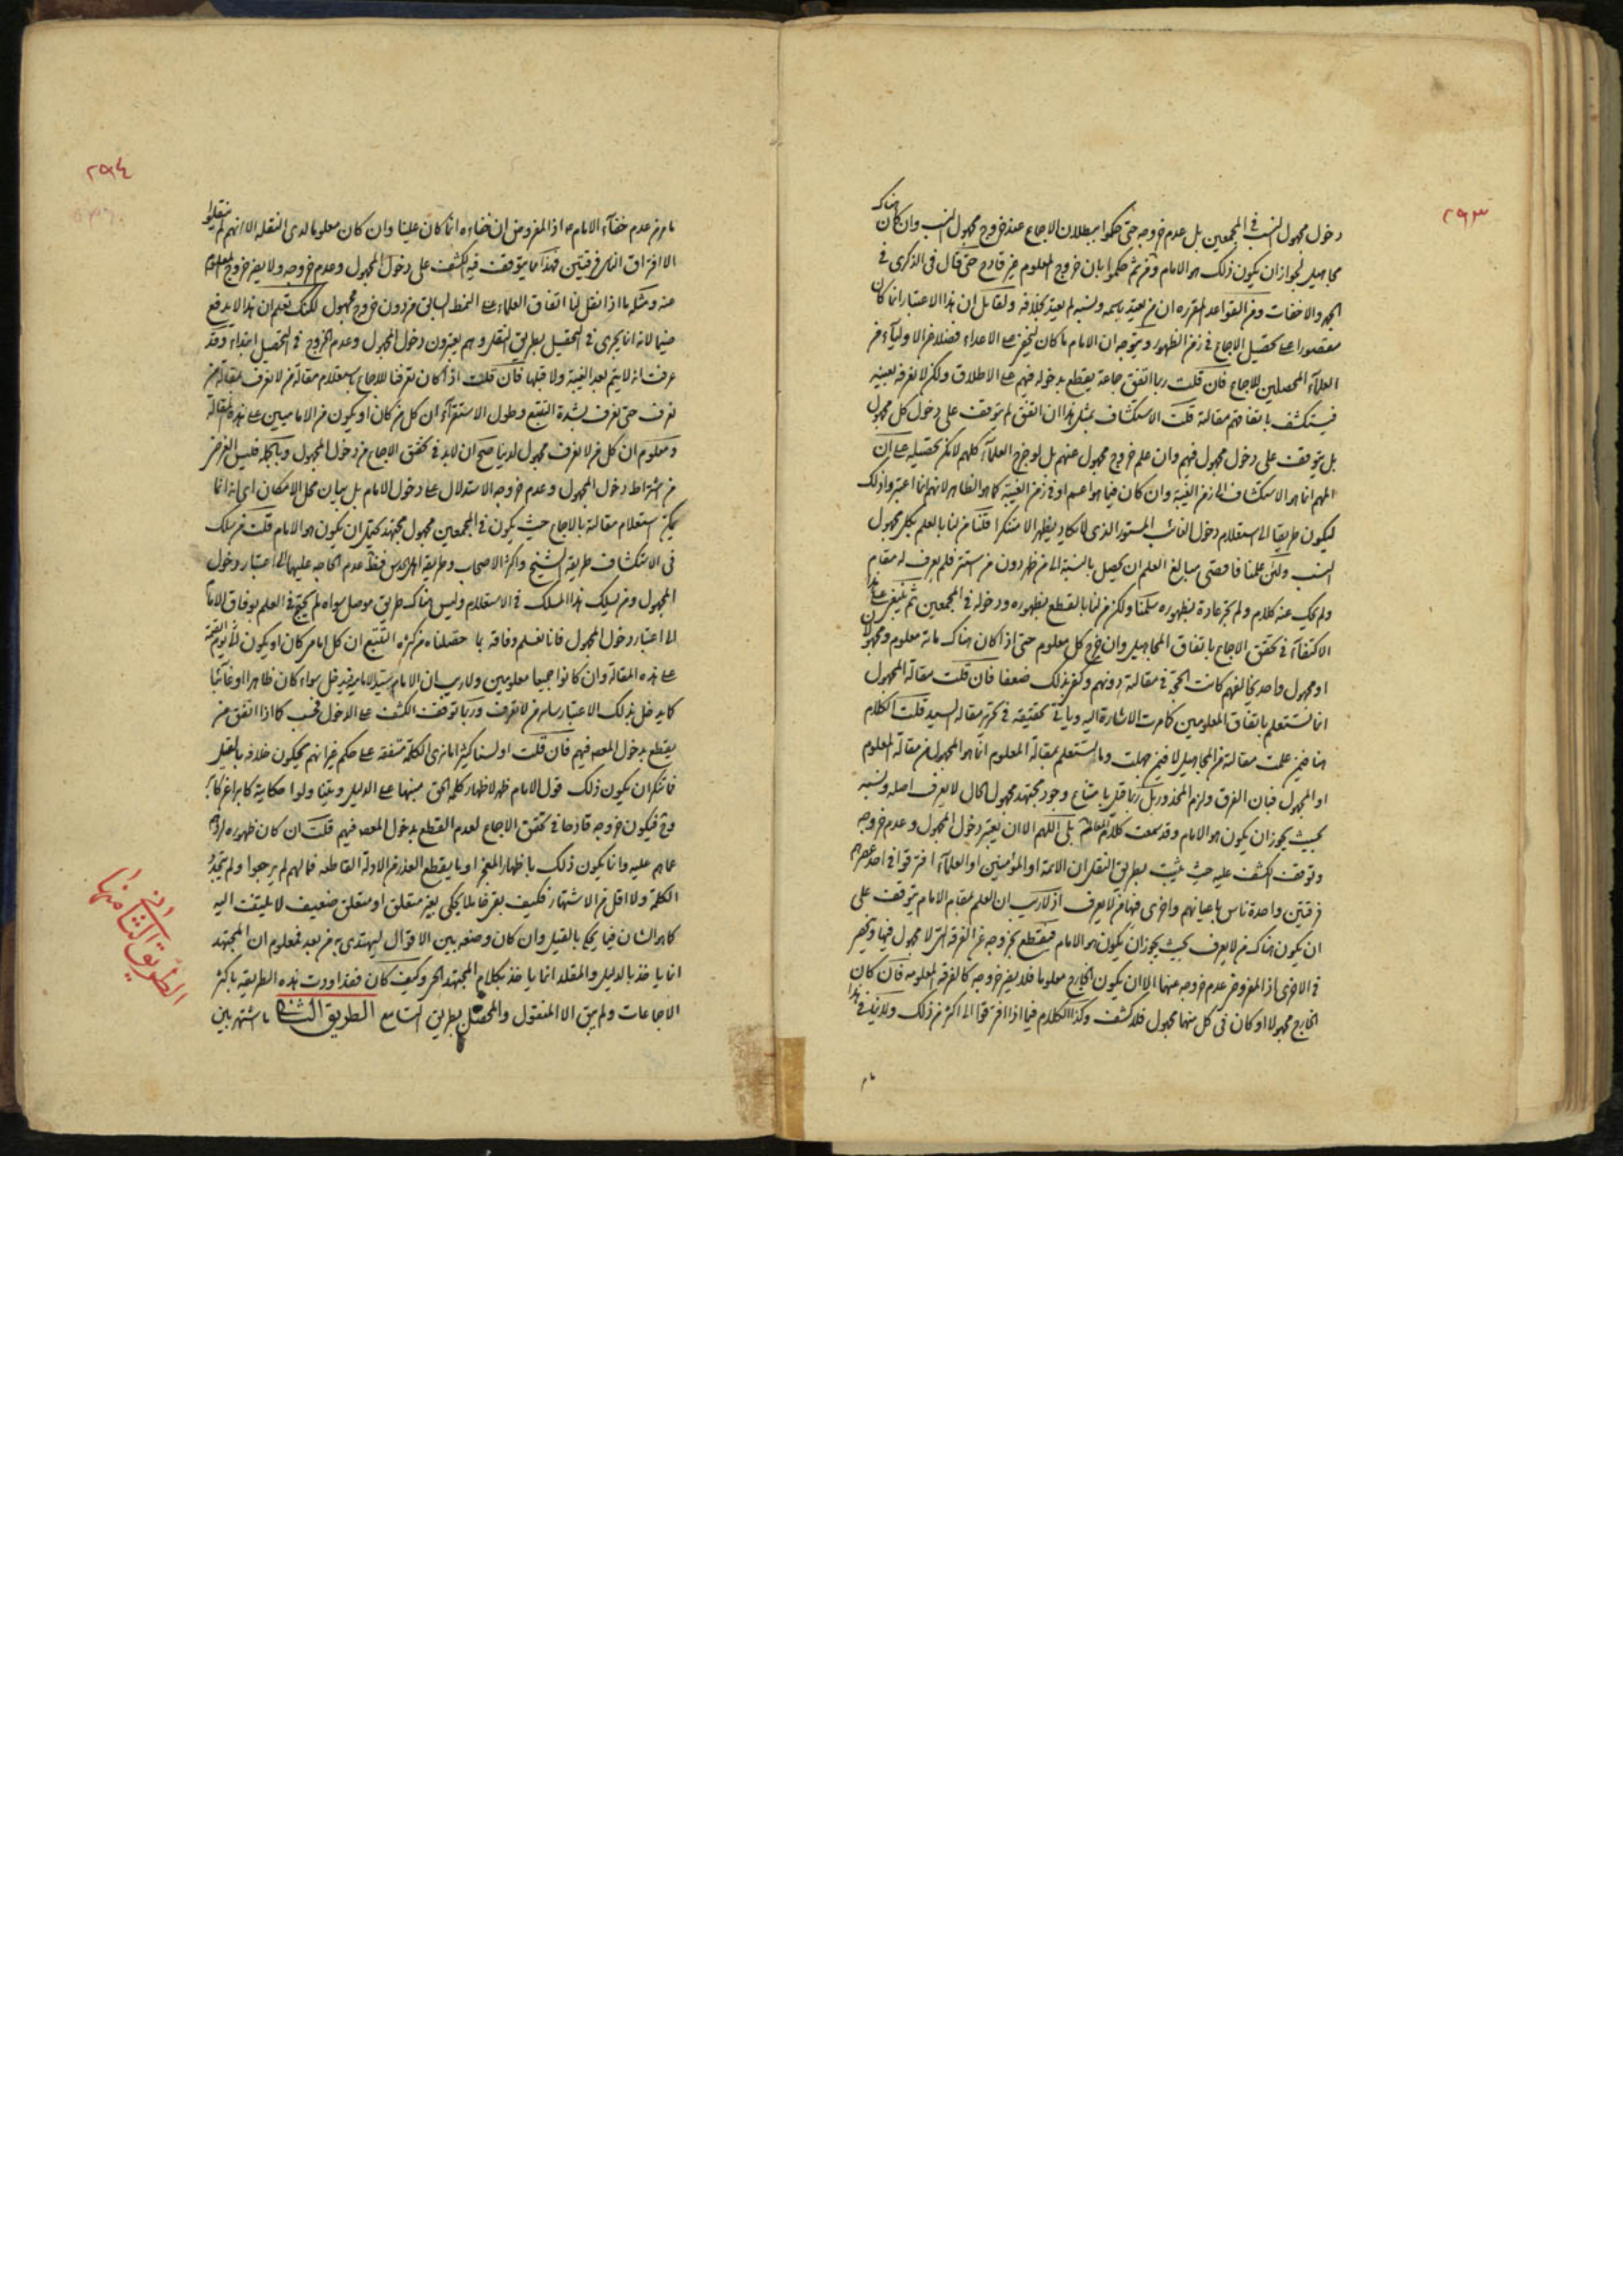 ٢٩٣
هناك
دخول مجهول النسب في المجمعين بل عدم خروجه حتى حكموا ببطلان الاجماع عند خروج مجهول النسب وان كان
مجاهيل لجواز ان يكون ذلك هو الامام ومن ثم حكموا بان خروج المعلوم غير قادح حتى قال في الذكرى في
الجهر والاخفات ومن القواعد المقررة ان من يعتد باسمه ونسبه لم يعتد بخلافه ولقائل ان هذا الاعتبار انما كان
مقصورا على تحصيل الاجماع في زمن الظهور ويتوجه ان الامام ما كان ليخفى على الاعداء فضلا عن الاولياء من
العلماء المحصلين للاجماع فان قلت ربما اتفق جماعة يقطع بدخوله فيهم على الاطلاق ولكن لا نعرفه بعينه
فيستكشف باتفاقهم مقالته قلت الاستكشاف بمثل هذا ان اتفق لم يتوقف على دخول كل مجهول
بل يتوقف على دخول مجهول فيهم وان علم خروج مجهول عنهم بل لو خرج العلماء كلهم لامكن تحصيله على ان
المهم انما هو الاستكشاف في زمن الغيبة وان كان فيما هو اعم او في زمن الغيبة كما هو الظاهر لانهم انما اعتبروا ذلك
ليكون طريقا الى استعلام دخول الغائب المستور الذي لا يكاد يظهر الا متنكرا قلنا من لنا بالعلم بكل مجهول
النسب ولئن علمنا فاقصى مبالغ العلم ان يحصل بالنسبة الى من ظهر دون من استتر فلم يعرف له مقام
ولم يحك عنه كلام ولم تجر عادة بظهوره سلمنا ولكن من لنا بالقطع بظهوره ودخوله في المجمعين ثم ينبغي على هذا
الاكتفاء في تحقق الاجماع باتفاق المجاهيل وان خرج كل معلوم حتى اذا كان هناك مائة معلوم ومجهولان
او مجهول واحد يخالفهم كانت الحجة في مقالته دونهم وكفى بذلك ضعفا فان قلت مقالة المجهول
انما تستعلم باتفاق المعلومين كما مرت الاشارة اليه ويأتي تحقيقه في تحرير مقالة السيد قلت الكلام
هنا فيمن علمت مقالته من المجاهيل لا فيمن جهلت وما تستعلم بمقالة المعلوم انما هو المجهول من مقالة المعلوم
او المجهول فبان الفرق ولزم المحذور بل ربما قيل بامتناع وجود مجتهد مجهول الحال لا يعرف اصله ونسبه
بحيث يجوز ان يكون هو الامام وقد سمعت كلام المعالم بلى اللهم الا ان يعتبر دخول المجهول وعدم خروجه
وتوقف الكشف عليه حيث يثبت بطريق النقل ان الائمة او المؤمنين او العلماء افترقوا في احد عصرهم
فرقتين واحدة ناس باعيانهم واخرى فيها من لا يعرف اذ لا ريب ان العلم بمقام الامام يتوقف على
ان يكون هناك من لا يعرف بحيث يجوز ان يكون هو الامام فيقطع بخروجه عن الفرقة التي لا مجهول فيها وينحصر
في الاخرى اذ المفروض عدم خروجه منهما الا ان يكون الخارج معلوما فلا يضر خروجه كالفرقة المعلومة فان كان
الخارج مجهولا او كان في كل منهما مجهول فلا كشف وكذا الكلام فيما اذا افترقوا الى اكثر من ذلك ولا ينافي هذا
ما
٢٩٤
ما مر من عدم خفاء الامام ع اذ المفروض ان خفاءه انما كان علينا وان كان معلوما لدى النقلة الا انهم لم ينقلوا
الا افتراق الناس فرقتين فهذا ما يتوقف فيه الكشف على دخول المجهول وعدم خروجه ولا يضر خروج المعلوم
عنه ومثله ما اذا نقل لنا اتفاق العلماء على النمط السابق من دون خروج مجهول لكنك تعلم ان هذا لا يدفع
ضيما لانه انما يجري في التحصيل بطريق النقل وهم يعتبرون دخول المجهول وعدم الخروج في التحصيل ابتداء وقد
عرفت انه لا يتم لبعد الغيبة ولا قبلها فان قلت اذا كان تعرفنا للاجماع باستعلام مقالة من لا نعرف بمقالة من
نعرف حتى نعرف بشدة التتبع وطول الاستقراء ان كل من كان او يكون من الاماميين على هذه المقالة
ومعلوم ان كل من لا نعرف مجهول لدينا صح ان لا بد في تحقق الاجماع من دخول المجهول وبالجملة فليس الغرض
من اشتراط دخول المجهول وعدم خروجه الاستدلال على دخول الامام بل بيان محل الامكان اي انه انما
يمكن استعلام مقالته بالاجماع حيث يكون في المجمعين مجهول مجتهد يحتمل ان يكون هو الامام قلت من سلك
في الاستكشاف طريقة الشيخ واكثر الاصحاب وطريقة الحدس فقد عدم الحاجة عليهما الى اعتبار دخول
المجهول ومن يسلك هذا المسلك في الاستعلام وليس هناك طريق موصل سواه لم يحتج في العلم بوفاق الامام
الى اعتبار دخول المجهول فانا نعلم وفاقه بما حصلناه من كثرة التتبع ان كل امامي كان او يكون الى يوم القيمة
على هذه المقالة وان كانوا جميعا معلومين ولا ريب ان الامام سيد الامامية فيدخل سواء كان ظاهرا او غائبا
كما يدخل بذلك الاعتبار سائر من لا نعرف وربما توقف الكشف على الدخول فحسب كما اذا اتفق من
يقطع بدخول المعصوم فيهم فان قلت او لسنا كثيرا ما نرى الكلمة متفقة على حكم غير انهم يحكون خلافه بالقيل
فما ننكر ان يكون ذلك قول الامام ظهر لاظهار كلمة الحق مبنيها على الدليل وبينا ولو احكاية
وح فيكون خروجه قادحا في تحقق الاجماع لعدم القطع بدخول المعصوم فيهم قلت ان كان ظهوره لردهم
عما هم عليه وانما يكون ذلك باظهار المعجز او بما يقطع العذر من الادلة القاطعة فما لهم لم يرجعوا ولم تتحد
الكلمة ولا اقل من الاشتهار فكيف بقي خاملا يحكى بغير متعلق او متعلق ضعيف لا يلتفت اليه
كما هو الشان فيما يحكى بالقيل وان كان وضعه بين الاقوال ليهتدى به من بعد فمعلوم ان المجتهد
انما ياخذ بالدليل والمقلد انما ياخذ بكلام المجتهد الحي وكيف كان فقد اودت هذه الطريقة باكثر
الاجماعات ولم يبق الا المنقول والمحصل بطريق التسامع الطريق الثاني ما اشتهر بين
الطريق الثاني منها